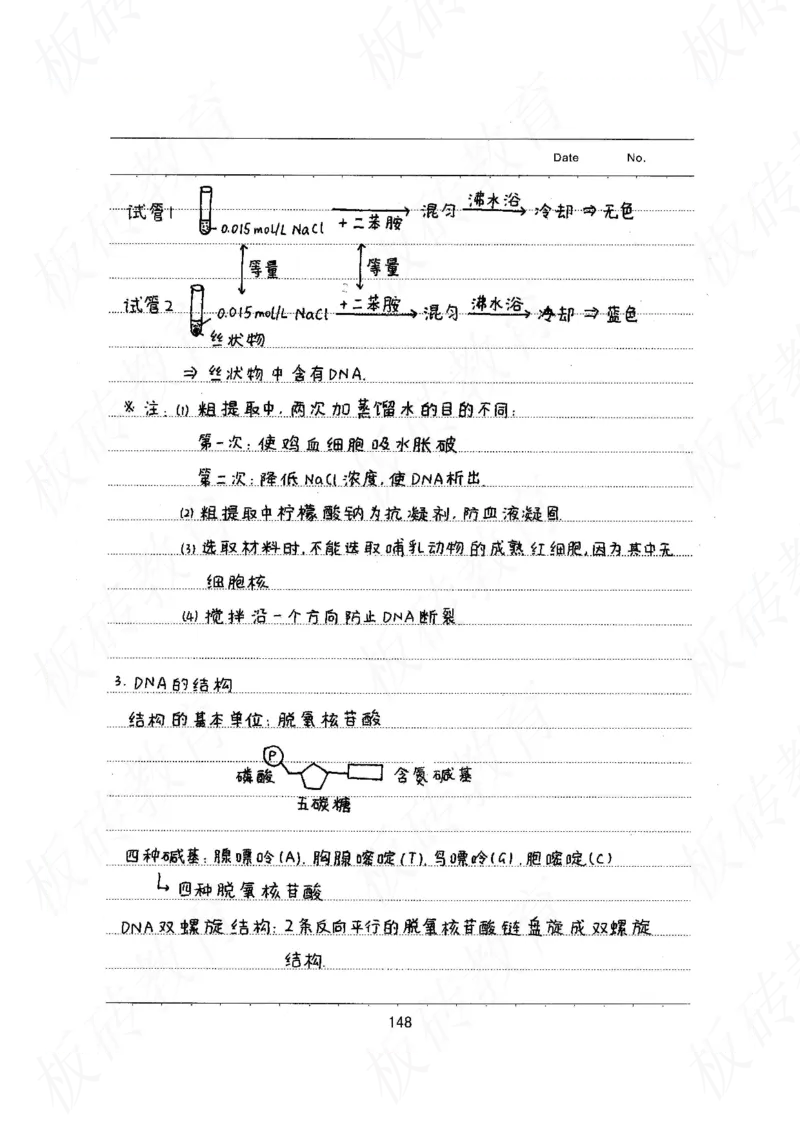 Date No.
试管1 0.015mol/L NaCl +二苯胺 混匀 沸水浴 冷却 ⇒ 无色
等量 等量
试管2 0.015mol/L NaCl +二苯胺 混匀 沸水浴 冷却 ⇒ 蓝色
丝状物
⇒ 丝状物中含有DNA.
※ 注: (1) 粗提取中,两次加蒸馏水的目的不同:
第一次: 使鸡血细胞吸水胀破
第二次: 降低NaCl浓度,使DNA析出
(2) 粗提取中柠檬酸钠为抗凝剂,防血液凝固
(3) 选取材料时,不能选取哺乳动物的成熟红细胞,因为其中无
细胞核
(4) 搅拌沿一个方向防止DNA断裂
3. DNA的结构
结构的基本单位: 脱氧核苷酸
P
磷酸 含氮碱基
五碳糖
四种碱基: 腺嘌呤(A). 胸腺嘧啶(T). 鸟嘌呤(G). 胞嘧啶(C)
↳ 四种脱氧核苷酸
DNA双螺旋结构: 2条反向平行的脱氧核苷酸链盘旋成双螺旋
结构.
148
板砖教育